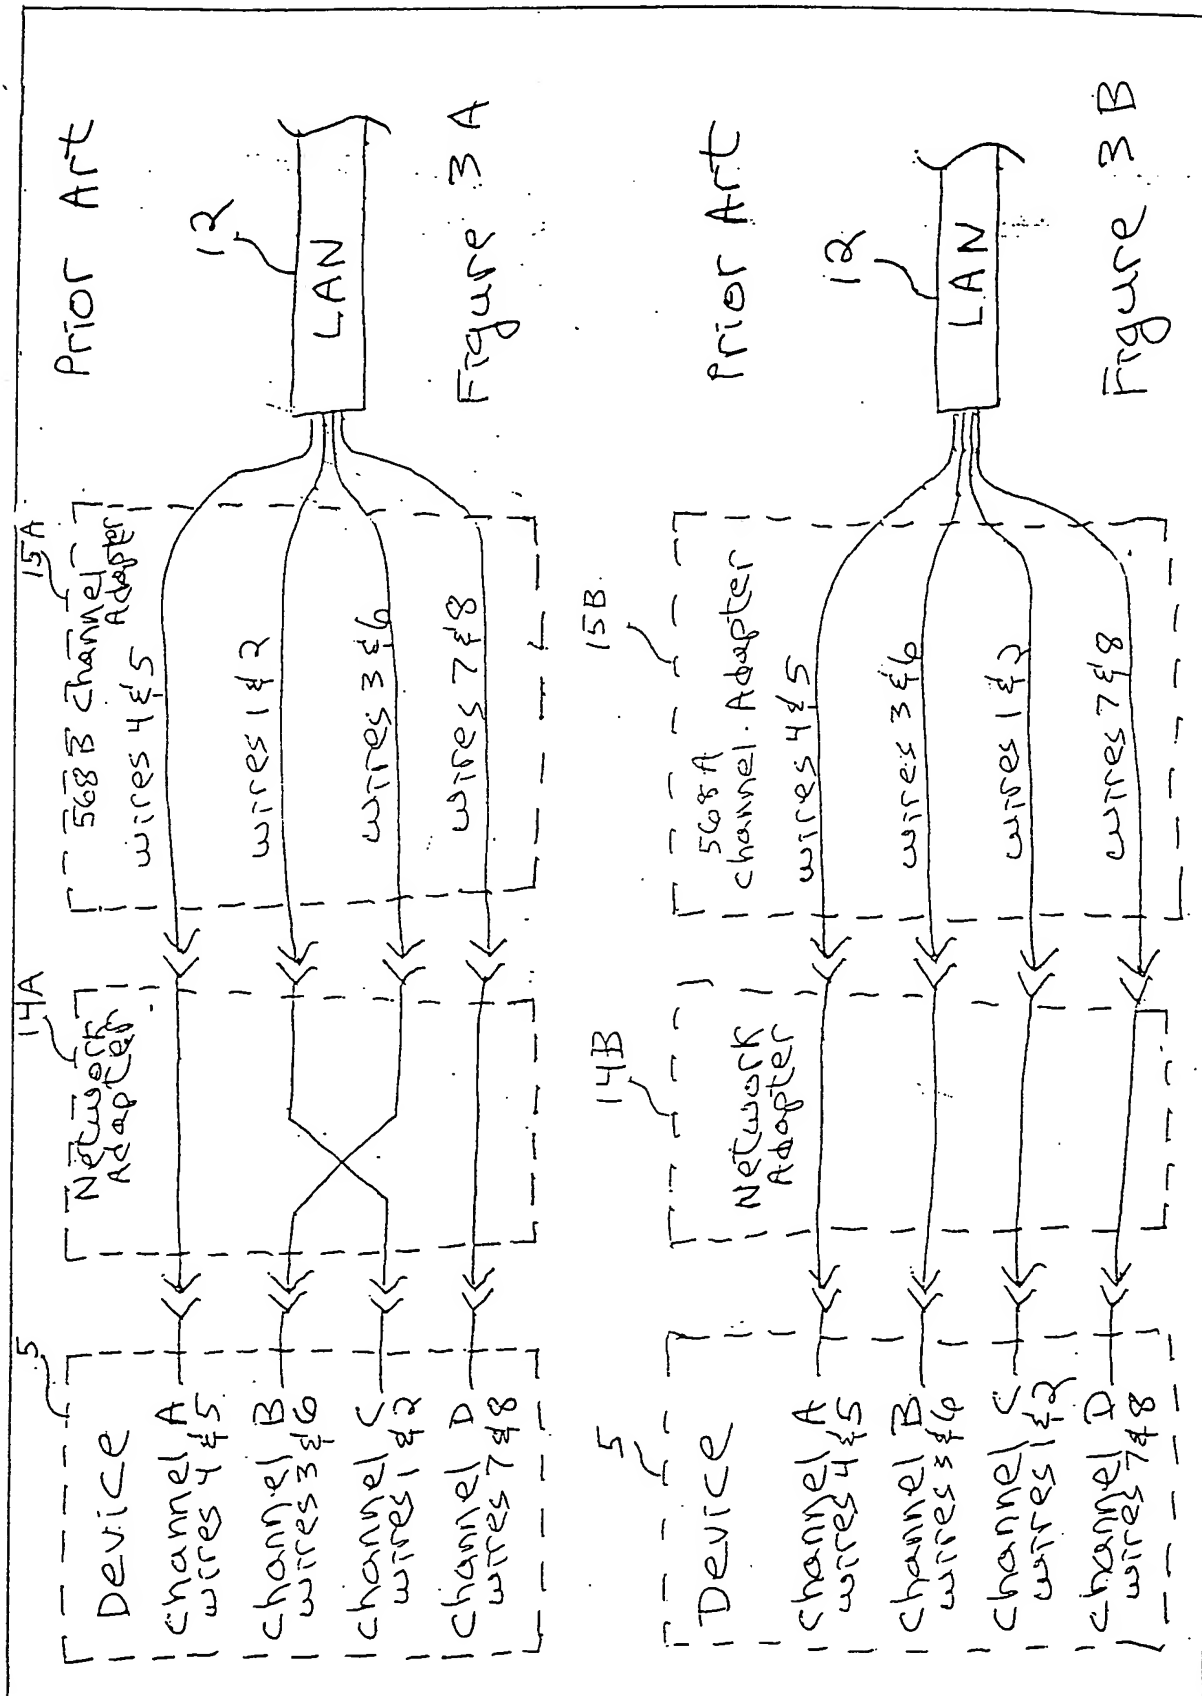 Prior Art
12
LAN
Figure 3A
15A
568B Channel
Adapter
wires 4 & 5
wires 1 & 2
wires 3 & 6
wires 7 & 8
14A
Network
Adapter
5
Device
Channel A
wires 4 & 5
Channel B
wires 3 & 6
Channel C
wires 1 & 2
Channel D
wires 7 & 8
Prior Art
12
LAN
Figure 3B
15B
568A
Channel Adapter
wires 4 & 5
wires 3 & 6
wires 1 & 2
wires 7 & 8
14B
Network
Adapter
5
Device
Channel A
wires 4 & 5
Channel B
wires 3 & 6
Channel C
wires 1 & 2
Channel D
wires 7 & 8